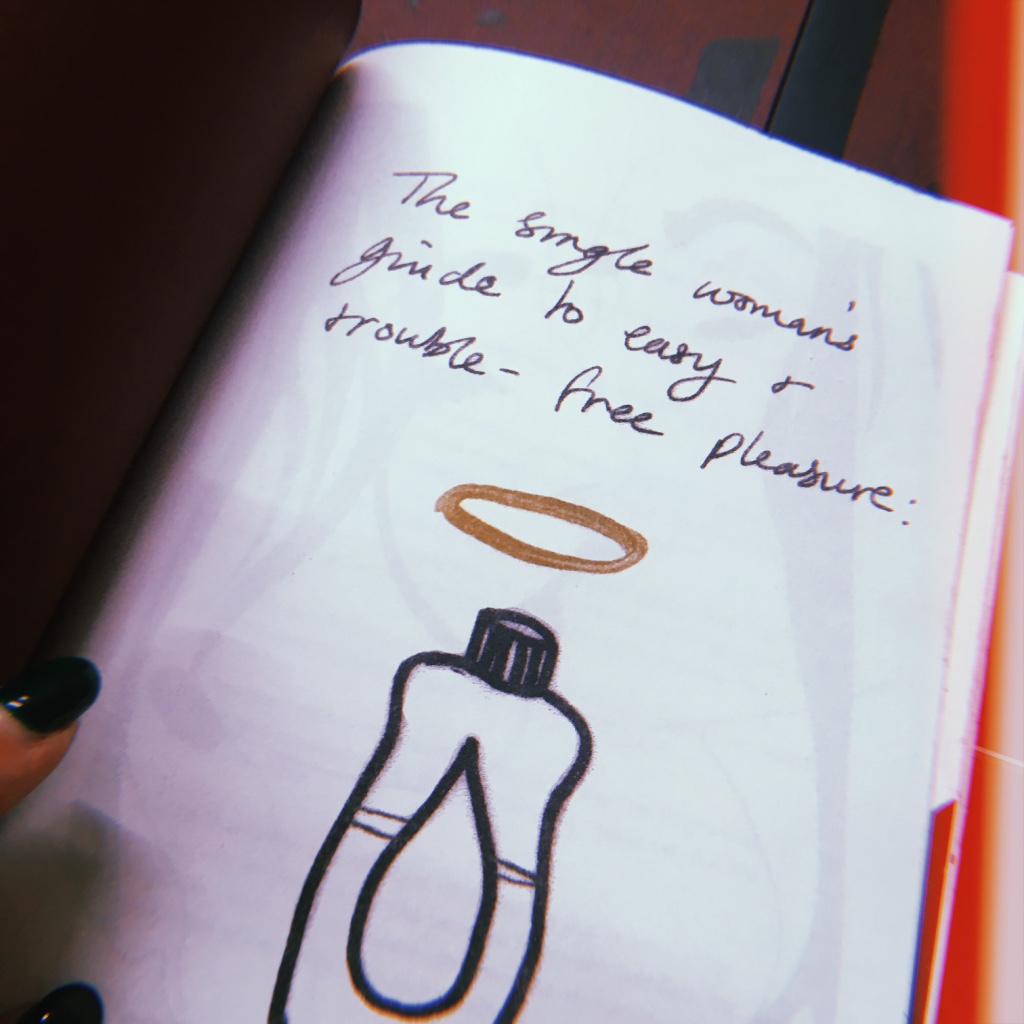 The single woman's
guide to easy &
trouble-free pleasure: